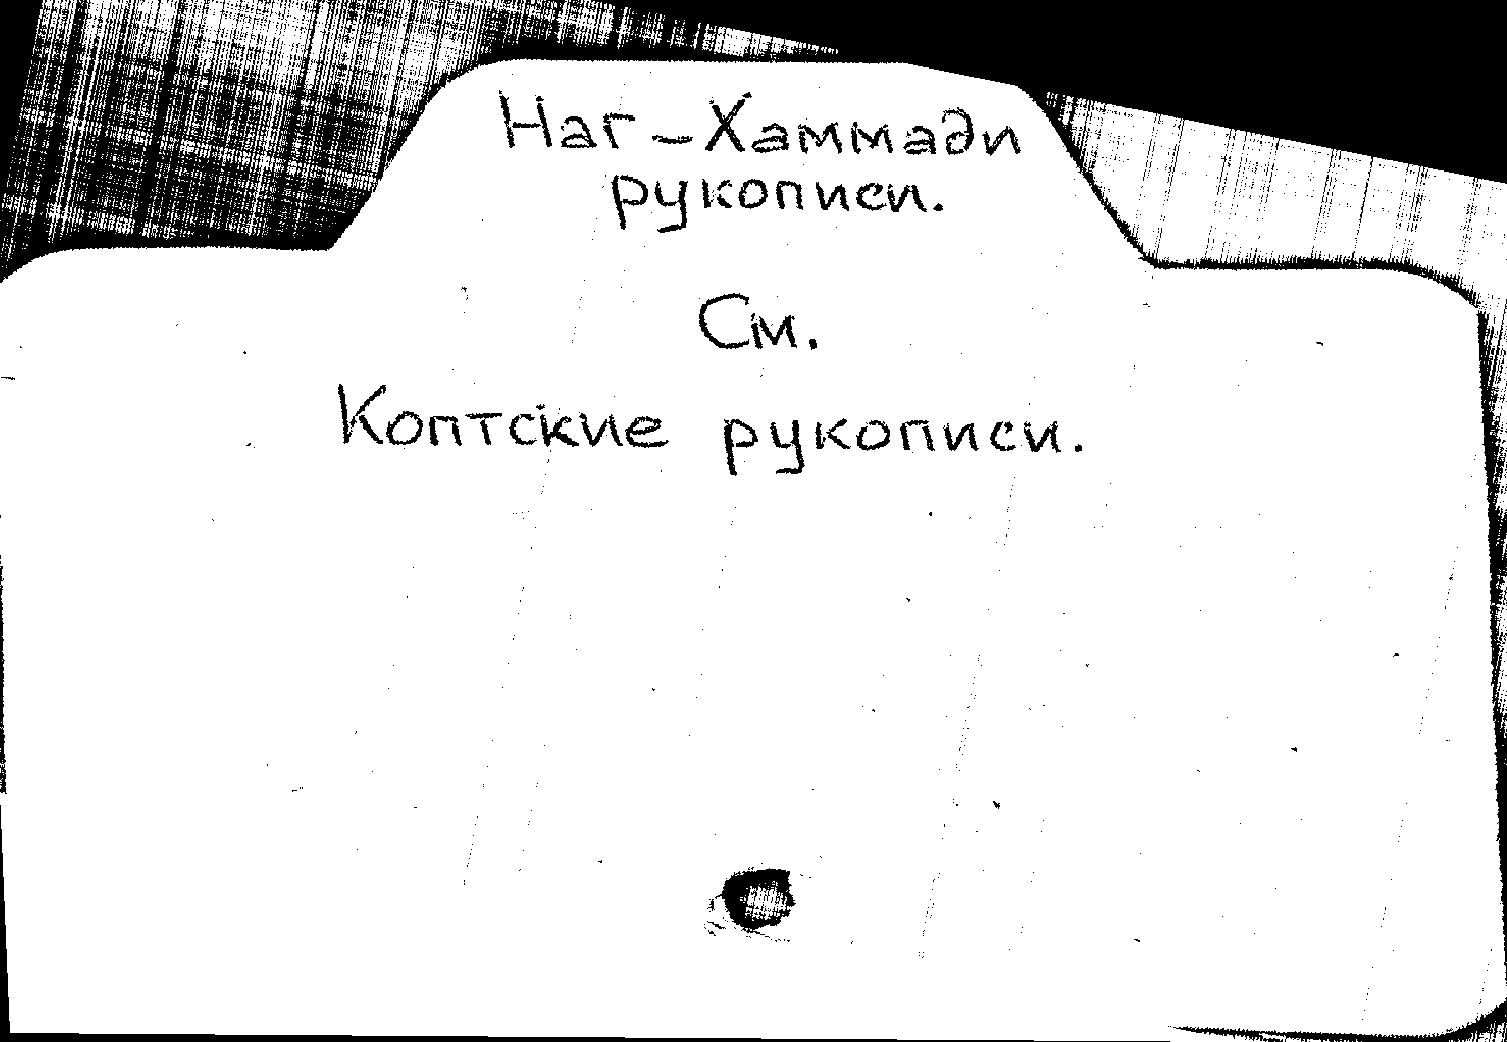 Наг-Хаммади
рукописи.
См.
Коптские рукописи.